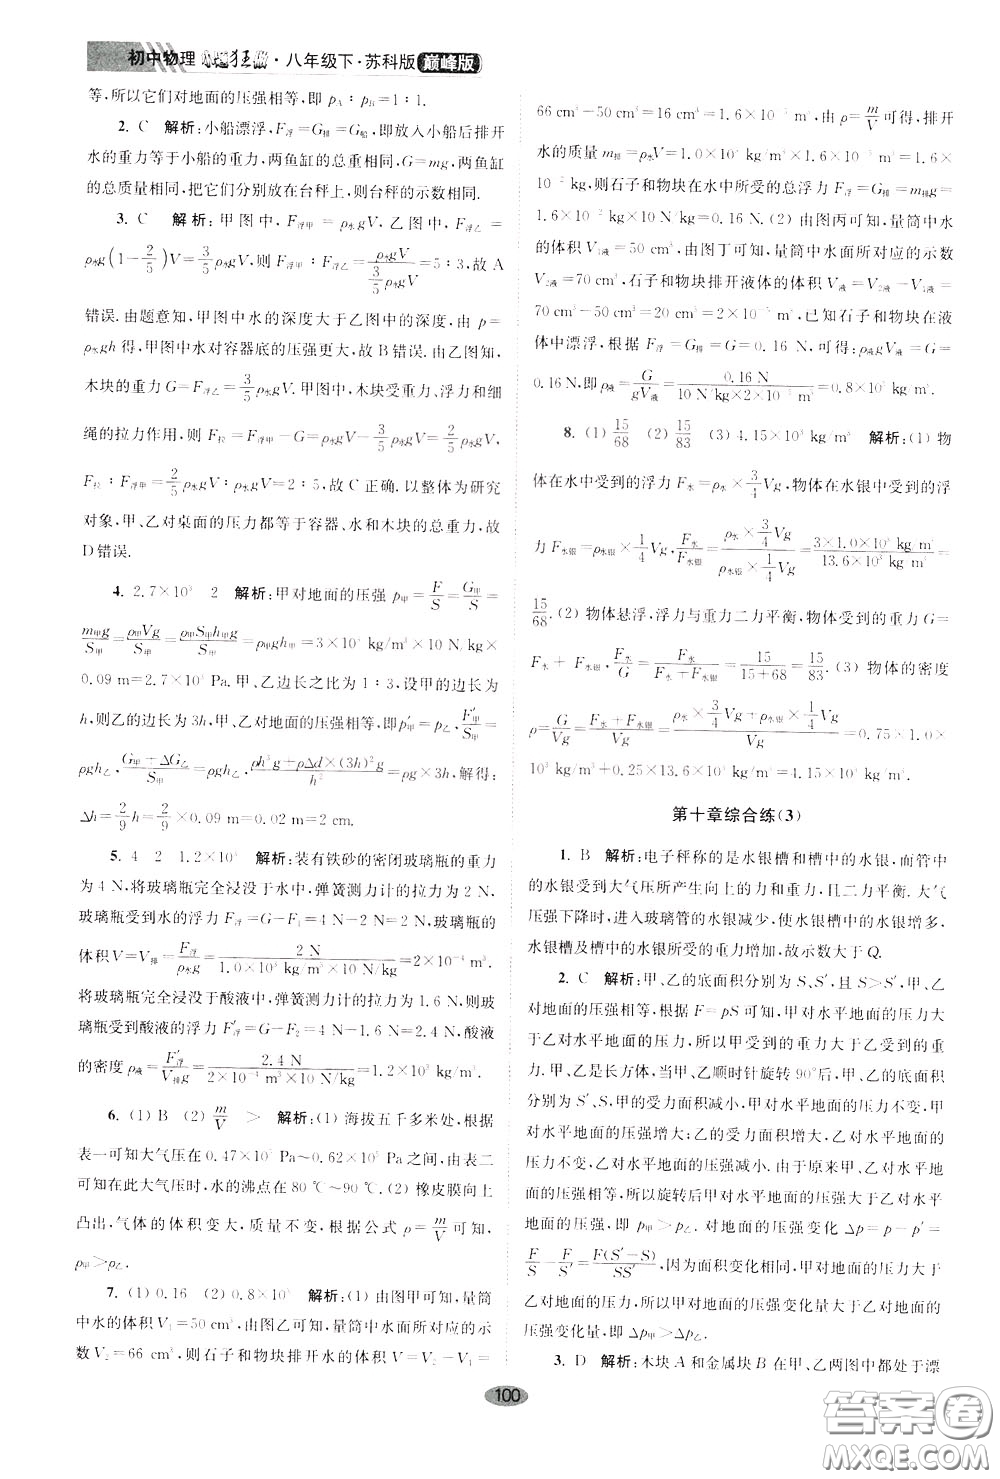 初中物理 小题狂做·八年级下·苏科版 巅峰版
等,所以它们对地面的压强相等,即 pA∶pB=1∶1.
2. C 解析:小船漂浮,F浮=G排=G船,即放入小船后排开
水的重力等于小船的重力,两鱼缸的总重相同,G=mg,两鱼缸
的总质量相同,把它们分别放在台秤上,则台秤的示数相同.
3. C 解析:甲图中,F浮甲=ρ水gV,乙图中,F浮乙=
ρ水g(1-2/5)V=3/5ρ水gV,则 F浮甲∶F浮乙=ρ水gV/(3/5ρ水gV)=5∶3,故 A
错误.由题意知,甲图中水的深度大于乙图中的深度,由 p=
ρ水gh 得,甲图中水对容器底的压强更大,故 B 错误.由乙图知,
木块的重力 G=F浮乙=3/5ρ水gV.甲图中,木块受重力、浮力和细
绳的拉力作用,则 F拉=F浮甲-G=ρ水gV-3/5ρ水gV=2/5ρ水gV,
F拉∶F浮甲=2/5ρ水gV∶ρ水gV=2∶5,故 C 正确.以整体为研究
对象,甲、乙对桌面的压力都等于容器、水和木块的总重力,故
D 错误.
4. 2.7×10³ 2 解析:甲对地面的压强 p甲=F/S=G甲/S甲=
m甲g/S甲=ρ甲Vg/S甲=ρ甲S甲h甲g/S甲=ρ甲gh甲=3×10³ kg/m³×10 N/kg×
0.09 m=2.7×10³ Pa.甲、乙边长之比为 1∶3,设甲的边长为
h,则乙的边长为 3h,甲、乙对地面的压强相等,即 p′甲=p乙,F′甲/S甲=
ρgh乙,(G甲+ΔG乙)/S甲=ρgh乙,(ρh³g+ρΔd×(3h)²g)/h²=ρg×3h,解得:
Δh=2/9h=2/9×0.09 m=0.02 m=2 cm.
5. 4 2 1.2×10³ 解析:装有铁砂的密闭玻璃瓶的重力
为 4 N,将玻璃瓶完全浸没于水中,弹簧测力计的拉力为 2 N,
玻璃瓶受到水的浮力 F浮=G-F1=4 N-2 N=2 N,玻璃瓶的
体积 V=V排=F浮/ρ水g=2 N/(1.0×10³ kg/m³×10 N/kg)=2×10⁻⁴ m³.
将玻璃瓶完全浸没于酸液中,弹簧测力计的拉力为 1.6 N,则玻
璃瓶受到酸液的浮力 F′浮=G-F2=4 N-1.6 N=2.4 N,酸液
的密度 ρ液=F′浮/V排g=2.4 N/(2×10⁻⁴ m³×10 N/kg)=1.2×10³ kg/m³.
6. (1) B (2) m/V > 解析:(1) 海拔五千多米处,根据
表一可知大气压在 0.47×10⁵ Pa~0.62×10⁵ Pa 之间,由表二
可知在此大气压时,水的沸点在 80 ℃~90 ℃.(2) 橡皮膜向上
凸出,气体的体积变大,质量不变,根据公式 ρ=m/V 可知,
ρ甲>ρ乙.
7. (1) 0.16 (2) 0.8×10³ 解析:(1) 由图甲可知,量筒
中水的体积 V1=50 cm³,由图乙可知,量筒中水面所对应的示
数 V2=66 cm³,则石子和物块排开水的体积 V=V2-V1=
66 cm³-50 cm³=16 cm³=1.6×10⁻⁵ m³,由 ρ=m/V 可得,排开
水的质量 m排=ρ水V=1.0×10³ kg/m³×1.6×10⁻⁵ m³=1.6×
10⁻² kg,则石子和物块在水中所受的总浮力 F浮=G排=m排g=
1.6×10⁻² kg×10 N/kg=0.16 N.(2) 由图丙可知,量筒中水
的体积 V1液=50 cm³,由图丁可知,量筒中水面所对应的示数
V2液=70 cm³,石子和物块排开液体的体积 V液=V2液-V1液=
70 cm³-50 cm³=20 cm³=2×10⁻⁵ m³,已知石子和物块在液
体中漂浮,根据 F浮=G排=G=0.16 N,可得:ρ液gV液=G=
0.16 N,即 ρ液=G/gV液=0.16 N/(10 N/kg×2×10⁻⁵ m³)=0.8×10³ kg/m³.
8. (1) 15/68 (2) 15/83 (3) 4.15×10³ kg/m³ 解析:(1) 物
体在水中受到的浮力 F水=ρ水×3/4Vg,物体在水银中受到的浮
力 F水银=ρ水银×1/4Vg,F水/F水银=(ρ水×3/4Vg)/(ρ水银×1/4Vg)=(3×1.0×10³ kg/m³)/(13.6×10³ kg/m³)=
15/68.(2) 物体悬浮,浮力与重力二力平衡,物体受到的重力 G=
F水+F水银,F水/G=F水/(F水+F水银)=15/(15+68)=15/83.(3) 物体的密度
ρ=G/Vg=(F水+F水银)/Vg=(ρ水×3/4Vg+ρ水银×1/4Vg)/Vg=0.75×1.0×
10³ kg/m³+0.25×13.6×10³ kg/m³=4.15×10³ kg/m³.
第十章综合练(3)
1. B 解析:电子秤称的是水银槽和槽中的水银,而管中
的水银受到大气压所产生向上的力和重力,且二力平衡.大气
压强下降时,进入玻璃管的水银减少,使水银槽中的水银增多,
水银槽及槽中的水银所受的重力增加,故示数大于 Q.
2. C 解析:甲、乙的底面积分别为 S、S′,且 S>S′,甲、乙
对地面的压强相等,根据 F=pS 可知,甲对水平地面的压力大
于乙对水平地面的压力,所以甲受到的重力大于乙受到的重
力.同理可得,若将甲、乙顺时针旋转 90°后,甲、乙的底面积
分别为 S′、S,甲的受力面积减小,甲对水平地面的压力不变,甲
对水平地面的压强增大;乙的受力面积增大,乙对水平地面的
压力不变,乙对水平地面的压强减小.由于原来甲、乙对水平地
面的压强相等,所以旋转后甲对水平地面的压强大于乙对水平
地面的压强,即 p甲>p乙.对地面的压强变化 Δp=p-p′=
F/S-F/S′=F(S′-S)/SS′,因为面积变化相同,甲对地面的压力大于
乙对地面的压力,所以甲对地面的压强变化量大于乙对地面的
压强变化量,即 Δp甲>Δp乙.
3. D 解析:木块 A 和金属块 B 在甲、乙两图中都处于漂
100
答案圈
MXQE.COM